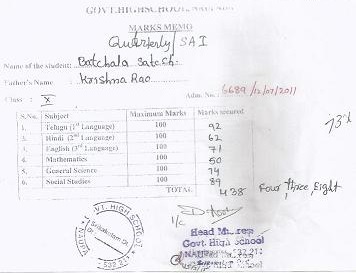 GOVT. HIGH SCHOOL,
MARKS MEMO
Quaterly/SA I
Name of the student: Batchala Satech.
Father's Name : Krishna Rao
Adm. No. 6689/12/07/2011
Class : X
S.No. Subject Maximum Marks Marks secured
1. Telugu (1st Language) 100 92
2. Hindi (2nd Language) 100 62
3. English (3rd Language) 100 71
4. Mathematics 100 50
5. General Science 100 74
6. Social Studies 100 89
TOTAL 438 Four, three, Eight
73%
I/c
GOVT. HIGH SCHOOL
Head
Govt. High School